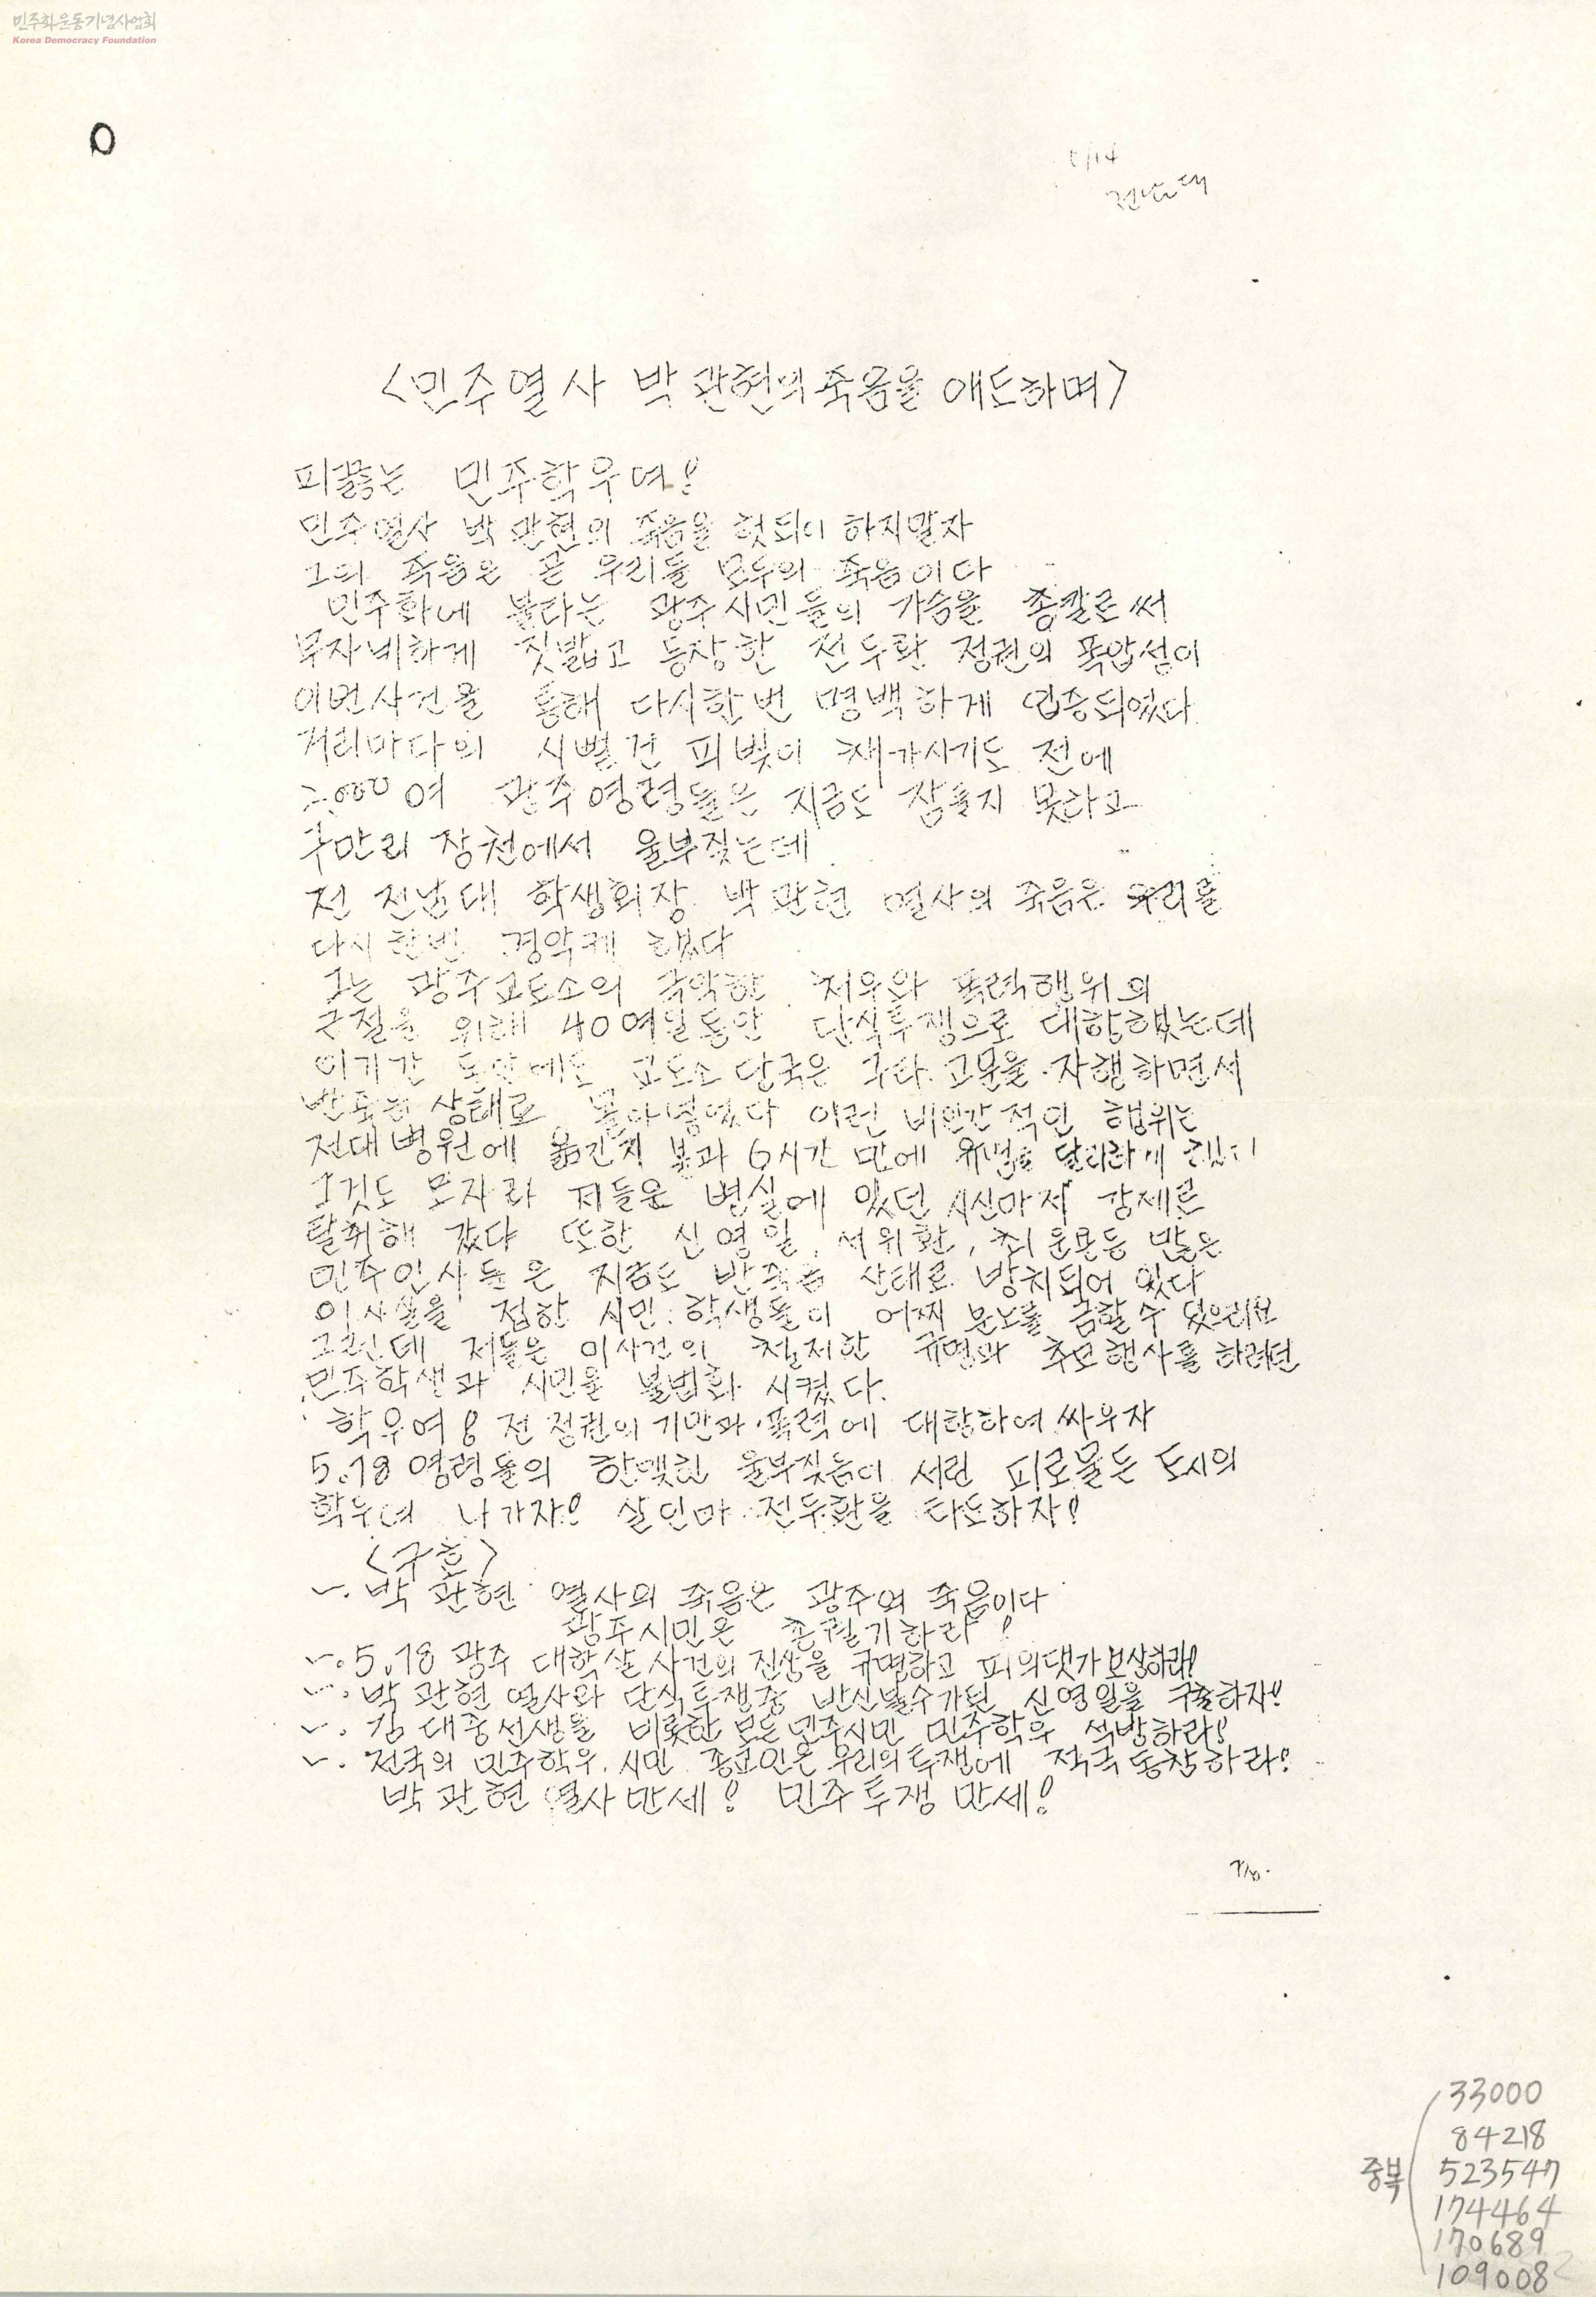 민주화운동기념사업회
Korea Democracy Foundation
전남대
<민주열사 박관현의 죽음을 애도하며>
피끓는 민주학우여!
민주열사 박관현의 죽음을 헛되이 하지말자
그의 죽음은 곧 우리들 모두의 죽음이다
민주화에 불타는 광주시민들의 가슴을 총칼로써
무자비하게 짓밟고 등장한 전두환 정권의 폭압성이
이번사건을 통해 다시한번 명백하게 입증되었다
거리마다의 시뻘건 피빛이 채가시기도 전에
2.000여 광주영령들은 지금도 잠들지 못하고
구만리 장천에서 울부짖는데
전 전남대 학생회장 박관현 열사의 죽음은 우리를
다시한번 경악케 했다
그는 광주교도소의 극악한 처우와 폭력행위의
근절을 위해 40여일동안 단식투쟁으로 대항했는데
이기간 동안에도 교도소 당국은 구타.고문을 자행하면서
반죽음 상태로 몰아넣었다 이런 비인간적인 행위는
전대병원에 옮긴지 불과 6시간 만에 유명을 달리하게
그것도 모자라 저들은 병실에 있던 시신마저 강제로
탈취해 갔다 또한 신영일, 서위환, 최운몬등 많은
민주인사들은 지금도 반죽음 상태로 방치되어 있다
이사실을 접한 시민.학생들이 어찌 분노를 금할수 있으리요
그런데 저들은 이사건의 철저한 규명과 추모행사를 하려던
민주학생과 시민을 불법화 시켰다.
학우여! 전 정권의 기만과 폭력에 대항하여 싸우자
5.18 영령들의 한맺힌 울부짖음이 서린 피로물든 도시의
학우여 나가자! 살인마 전두환을 타도하자!
<구호>
ㅡ. 박관현 열사의 죽음은 광주의 죽음이다
광주시민은 총궐기하라!
ㅡ. 5.18 광주 대학살사건의 진상을 규명하고 피의댓가 보상하라!
ㅡ. 박관현 열사와 단식투쟁중 반신불수가된 신영일을 구출하자!
ㅡ. 김대중선생을 비롯한 모든 민주시민 민주학우 석방하라!
ㅡ. 전국의 민주학우.시민.종교인은 우리의 투쟁에 적극 동참하라!
박관현 열사만세! 민주투쟁 만세!
중복
33000
84218
523547
174464
170689
109008